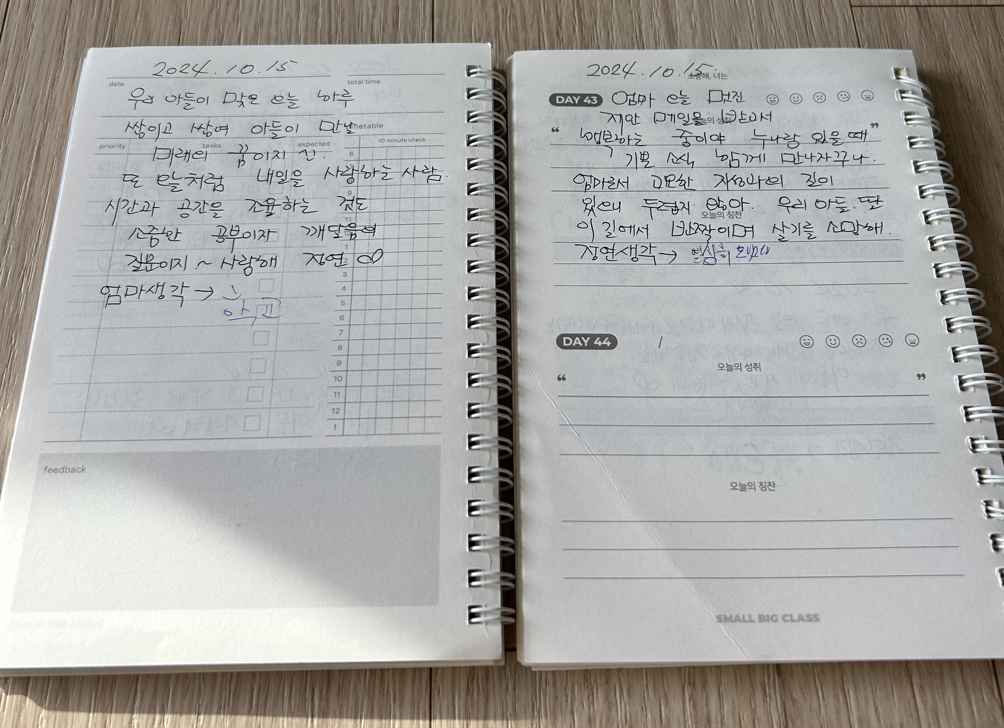 2024.10.15
date
total time
우리 아들이 맞은 오늘 하루
쌓이고 쌓여 아들이 만날
timetable
priority
tasks
expected
10 minute check
미래의 꿈이지
또 오늘처럼 내일을 사랑하는 사람.
시간과 공간을 조율하는 것도
소중한 공부이자 깨달음의
질문이지 ~ 사랑해 정연 ∞
엄마생각 →
3
4
5
6
7
8
9
10
11
12
1
feedback
2024.10.15.
DAY 43 엄마 오늘 멋진
제안 메일을 받고서
오늘의 성취
“ 행복하는 중이야 누나랑 있을 때 ”
기쁠 소식 함께 만나자꾸나.
엄마로서 고요한 자성과의 길이
있으니 두렵지 않아. 우리 아들, 딸
오늘의 칭찬
이 길에서 반짝이며 살기를 소망해.
정연생각 →
DAY 44
오늘의 성취
“ ”
오늘의 칭찬
SMALL BIG CLASS